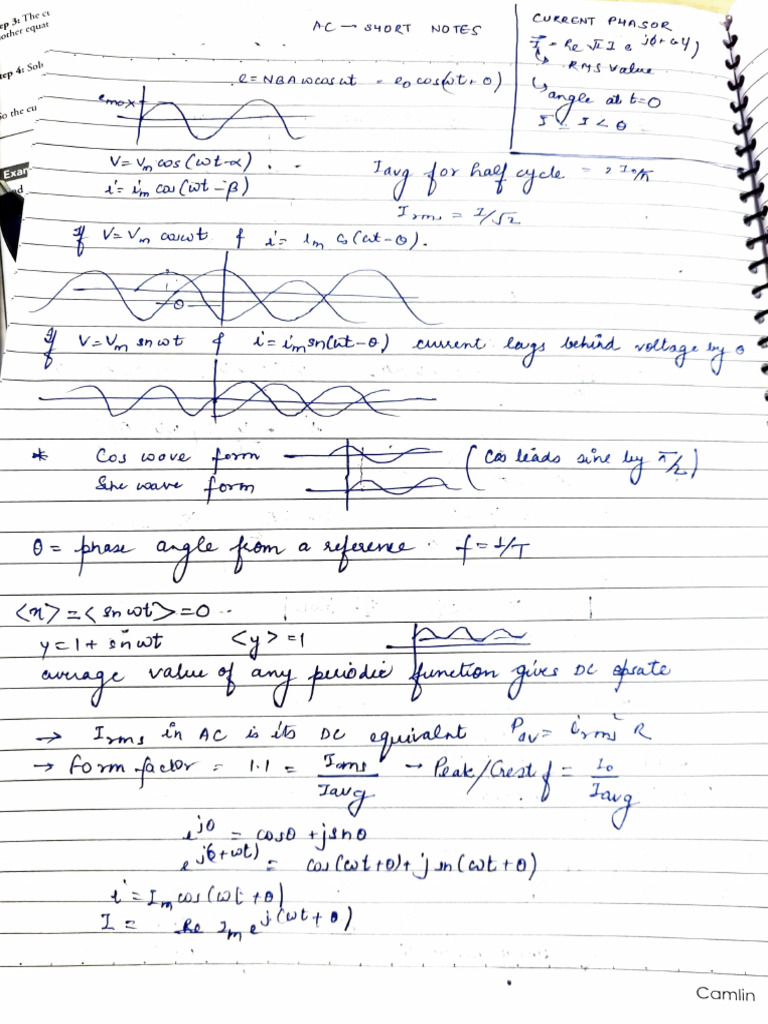 ep 3: The cu
other equat
ep 4: Sol
So the cu
Exar
AC → SHORT NOTES
CURRENT PHASOR
= Re √2 I e^j(θ+ωt)
→ RMS Value
angle at t=0
I < θ
e = NBAω cos ωt = e₀ cos(ωt + θ)
emax
V = Vm cos(ωt-α)
i = im cos(ωt-β)
Iavg for half cycle = 2I₀/π
Irms = I/√2
If V = Vm cosωt & i = im cos(ωt-θ).
θ
If V = Vm sn ωt & i = im sn(ωt-θ) current lags behind voltage by θ
* Cos wave form
Sine wave form
(Cos leads sine by π/2)
θ = phase angle from a reference. f = 1/T
<x> = <sn ωt> = 0
y = 1 + sin ωt <y> = 1
average value of any periodic function gives DC
→ Irms in AC is its DC equivalnt Pav = irms² R
→ Form factor = 1.1 = Irms/Iavg → Peak/Crest f = I₀/Iavg
e^jθ = cosθ + j snθ
e^j(θ+ωt) = cos(ωt+θ) + j sn(ωt+θ)
i = Im cos(ωt+θ)
I = Re Im e^j(ωt+θ)
Camlin